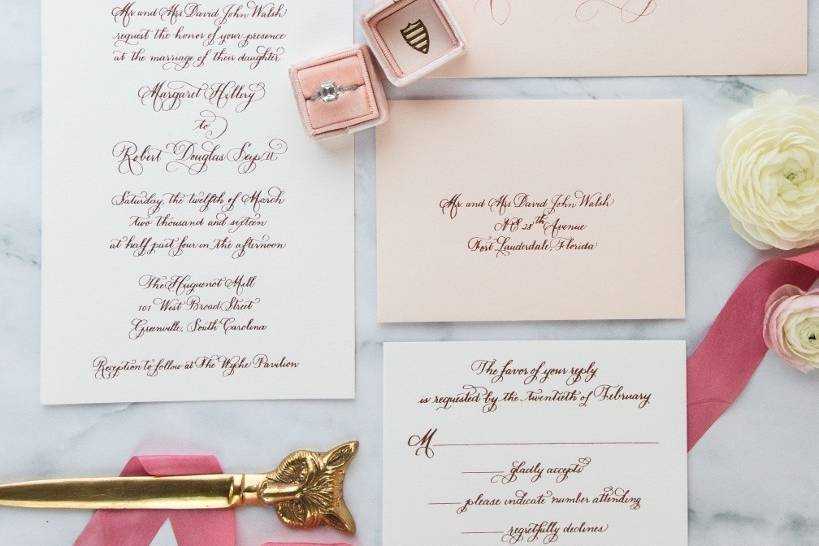 Mr and Mrs David John Walsh
request the honor of your presence
at the marriage of their daughter
Margaret Hillery
to
Robert Douglas Seyp II
Saturday, the twelfth of March
two thousand and sixteen
at half past four in the afternoon
The Huguenot Mill
101 West Broad Street
Greenville, South Carolina
Reception to follow at The Wyche Pavilion
Mr and Mrs David John Walsh
NE 28th Avenue
Fort Lauderdale, Florida
The favor of your reply
is requested by the twentieth of February
M
gladly accepts
please indicate number attending
regretfully declines